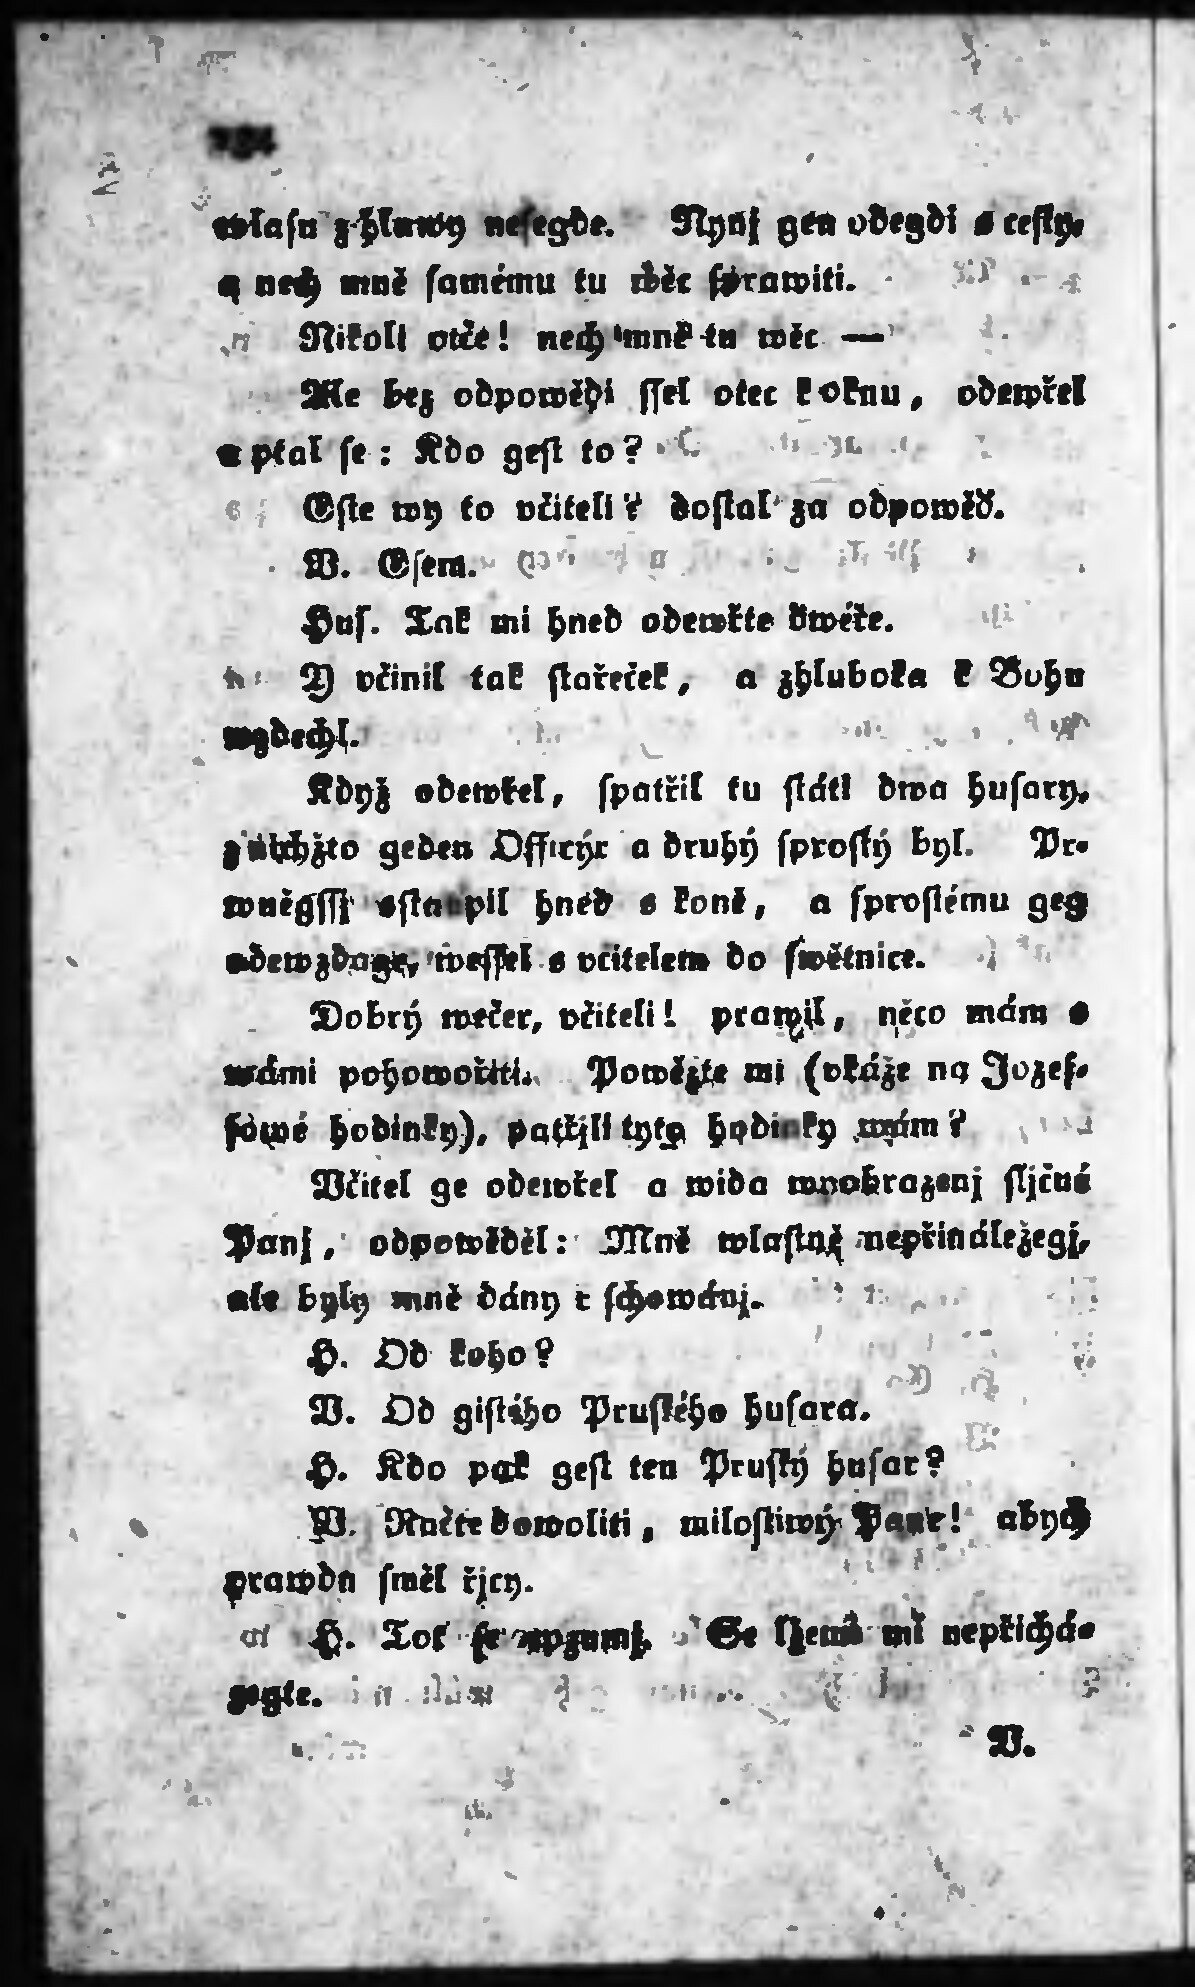 wlasu z hlawy nesegde. Nynj gen odegdi s cesty,
a nech mně samému tu wěc sprawiti.
Nikoli otče! nech mně tu wěc —
Ale bez odpowědi ssel otec k oknu, odewřel
a ptal se: Kdo gest to?
Gste wy to včiteli? dostal za odpowěď.
V. Gsem.
Hus. Tak mi hned odewřte dwéře.
Y včinil tak stařeček, a zhluboka k Bohu
wzdechl.
Když odewřel, spatřil tu státi dwa husary,
z nichžto geden Officýr a druhý sprostý byl. Pr-
wněgssj sstaupil hned s koně, a sprostému geg
odewzdage, wessel s včitelem do swětnice.
Dobrý wečer, včiteli! prawil, něco mám s
wámi pohowořiti. Powězte mi (vkáže na Jozef-
fowé hodinky), patřjli tyto hodinky wám?
Včitel ge odewřel a wida wyobrazenj sličné
Panj, odpowěděl: Mně wlastně nepřináležegj,
ale byly mně dány k schowánj.
H. Od koho?
V. Od gistého Pruského husara.
H. Kdo pak gest ten Pruský husar?
V. Račte dowoliti, milostiwý Pane! abych
prawdu směl řjcy.
H. Toť se rozumj. Se lžemi mi nepřichá-
zegte.
V.